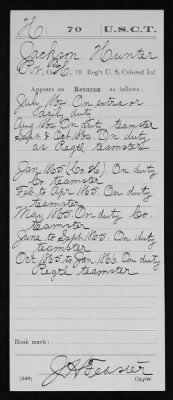 H 70 U.S.C.T.
Jackson Hunter
Pvt, Co. H, 70 Reg't U. S. Colored Inf.
Appears on Returns as follows:
July 1864 On extra or
daily duty
Aug 1864 On duty teamster
Sept & Oct 1864 On duty
as Reg'l teamster
Jan 1865 (Co H) On duty
Co teamster
Feb to Apr 1865 On duty
teamster
May 1865 On duty Co
teamster
June to Sept 1865 On duty
teamster
Oct 1865 to Jan 1866 On duty
Reg'l teamster
Book mark:
Webster
(546) Copyist.